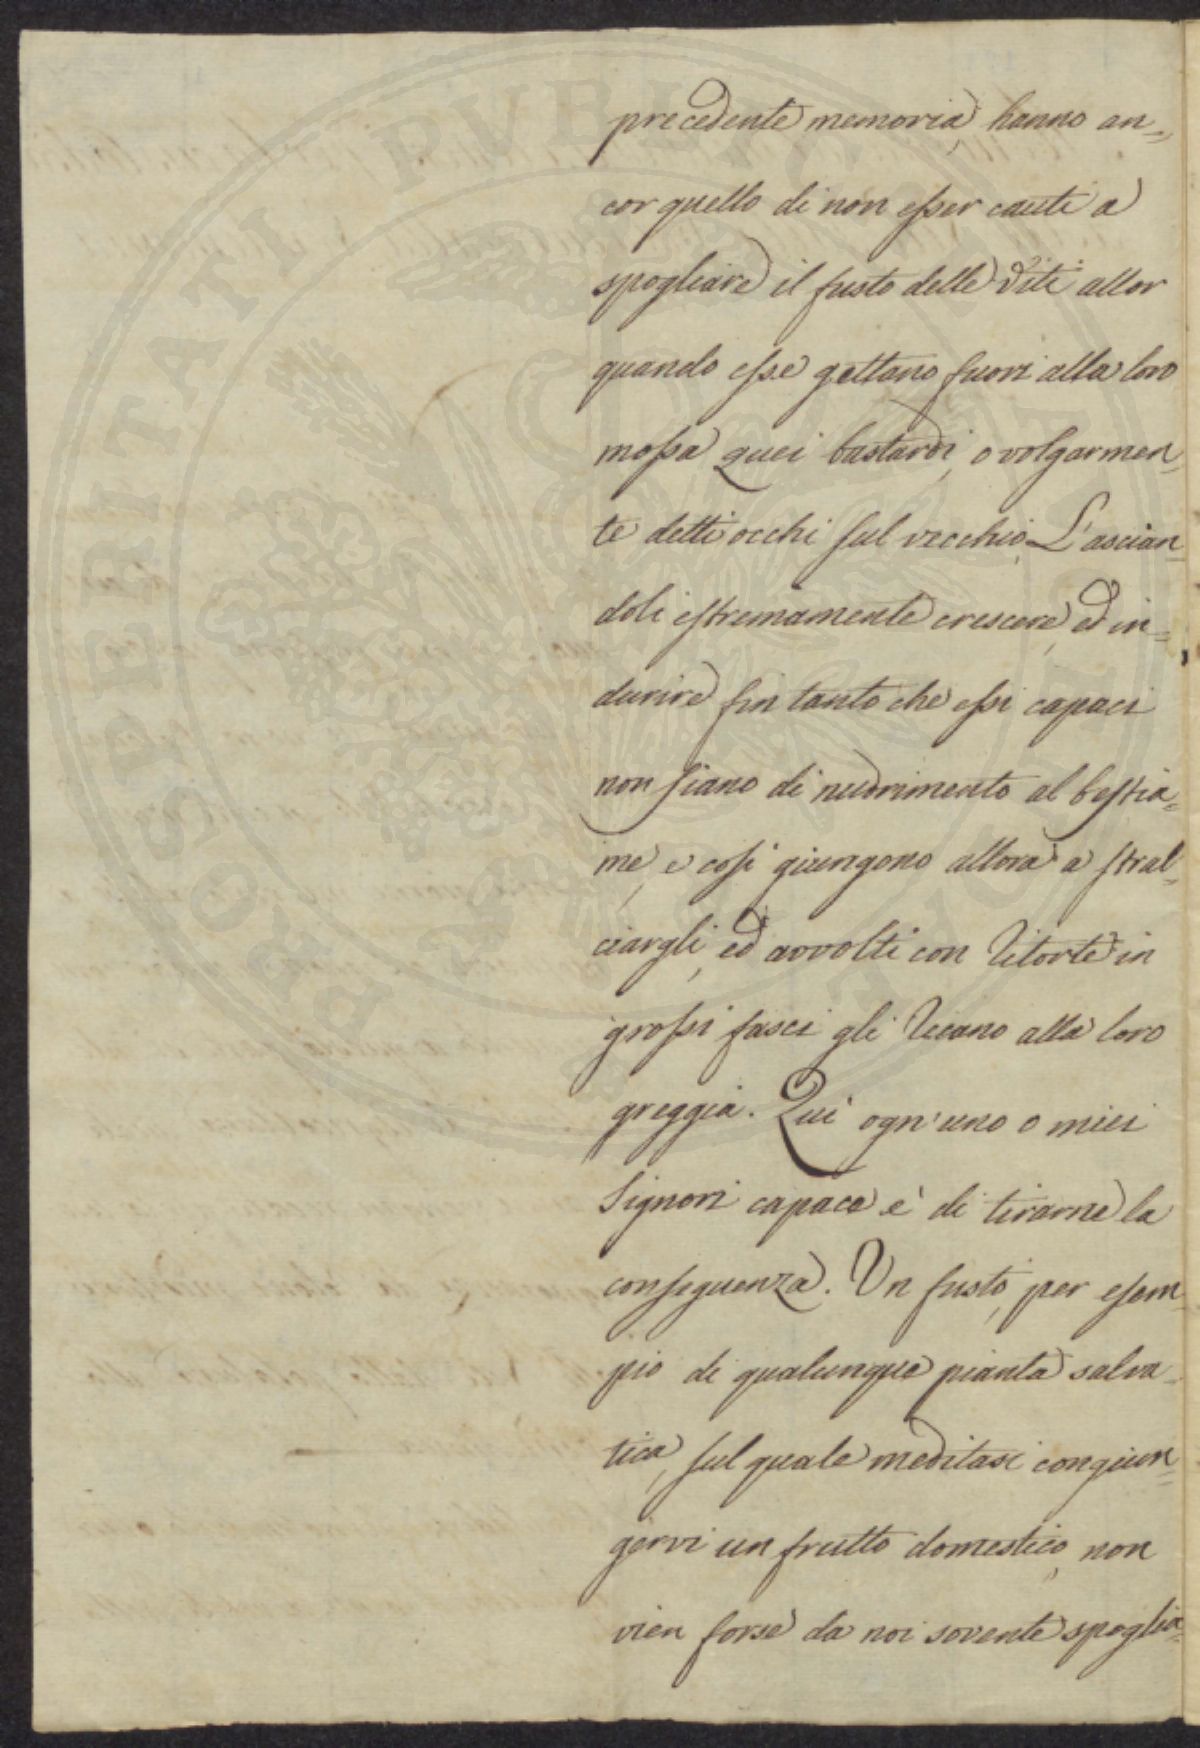 precedente memoria, hanno an„
cor quello di non eſser cauti a
spogliare il fusto delle Viti allor
quando eſse gettano fuori alla loro
moſsa quei bastardi, o volgarmen„
te detti occhi ſul vecchio, L'ascian„
doli eſtremamente crescere, ed in„
durire fin tanto che eſsi capaci
non ſiano di nudrimento al beſtia„
me, e coſi giungono allora a ſtral„
ciargli, ed avvolti con Ritorte in
groſsi fasci gli Recano alla loro
greggia. Qui ogn'uno o miei
Signori capace e' di tirarne la
conſeguenza. Un fusto, per eſem„
pio di qualunque pianta salva„
tica, ſul quale meditasi congiun„
gervi un frutto domestico, non
vien forse da noi sovente spoglia„
PROSPERITATI PVBLICAE